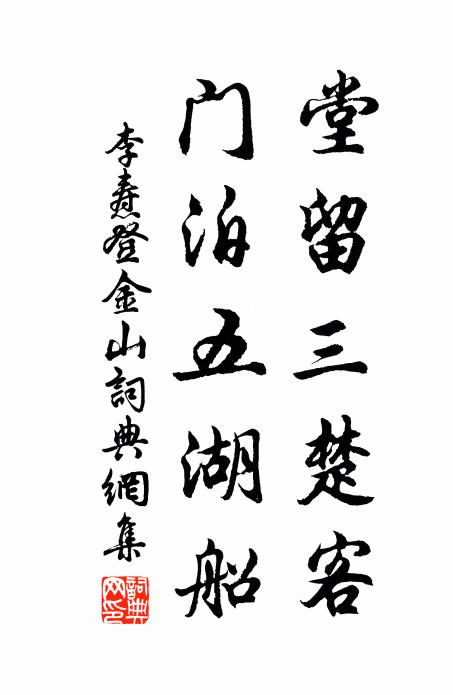 堂留三楚客
门泊五湖船
李燾登金山詞典網集
詞典网印